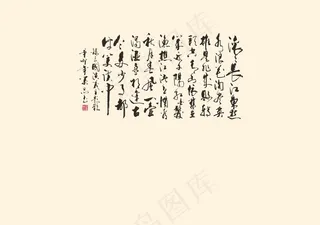 滚〻长江東逝
水浪花淘尽英
雄是非成敗轉
頭空青山依舊在
几度夕陽紅白髮
渔樵江渚上惯看
秋月春风一壶
浊酒喜相逢古
今多少事都
付笑谈中
图库